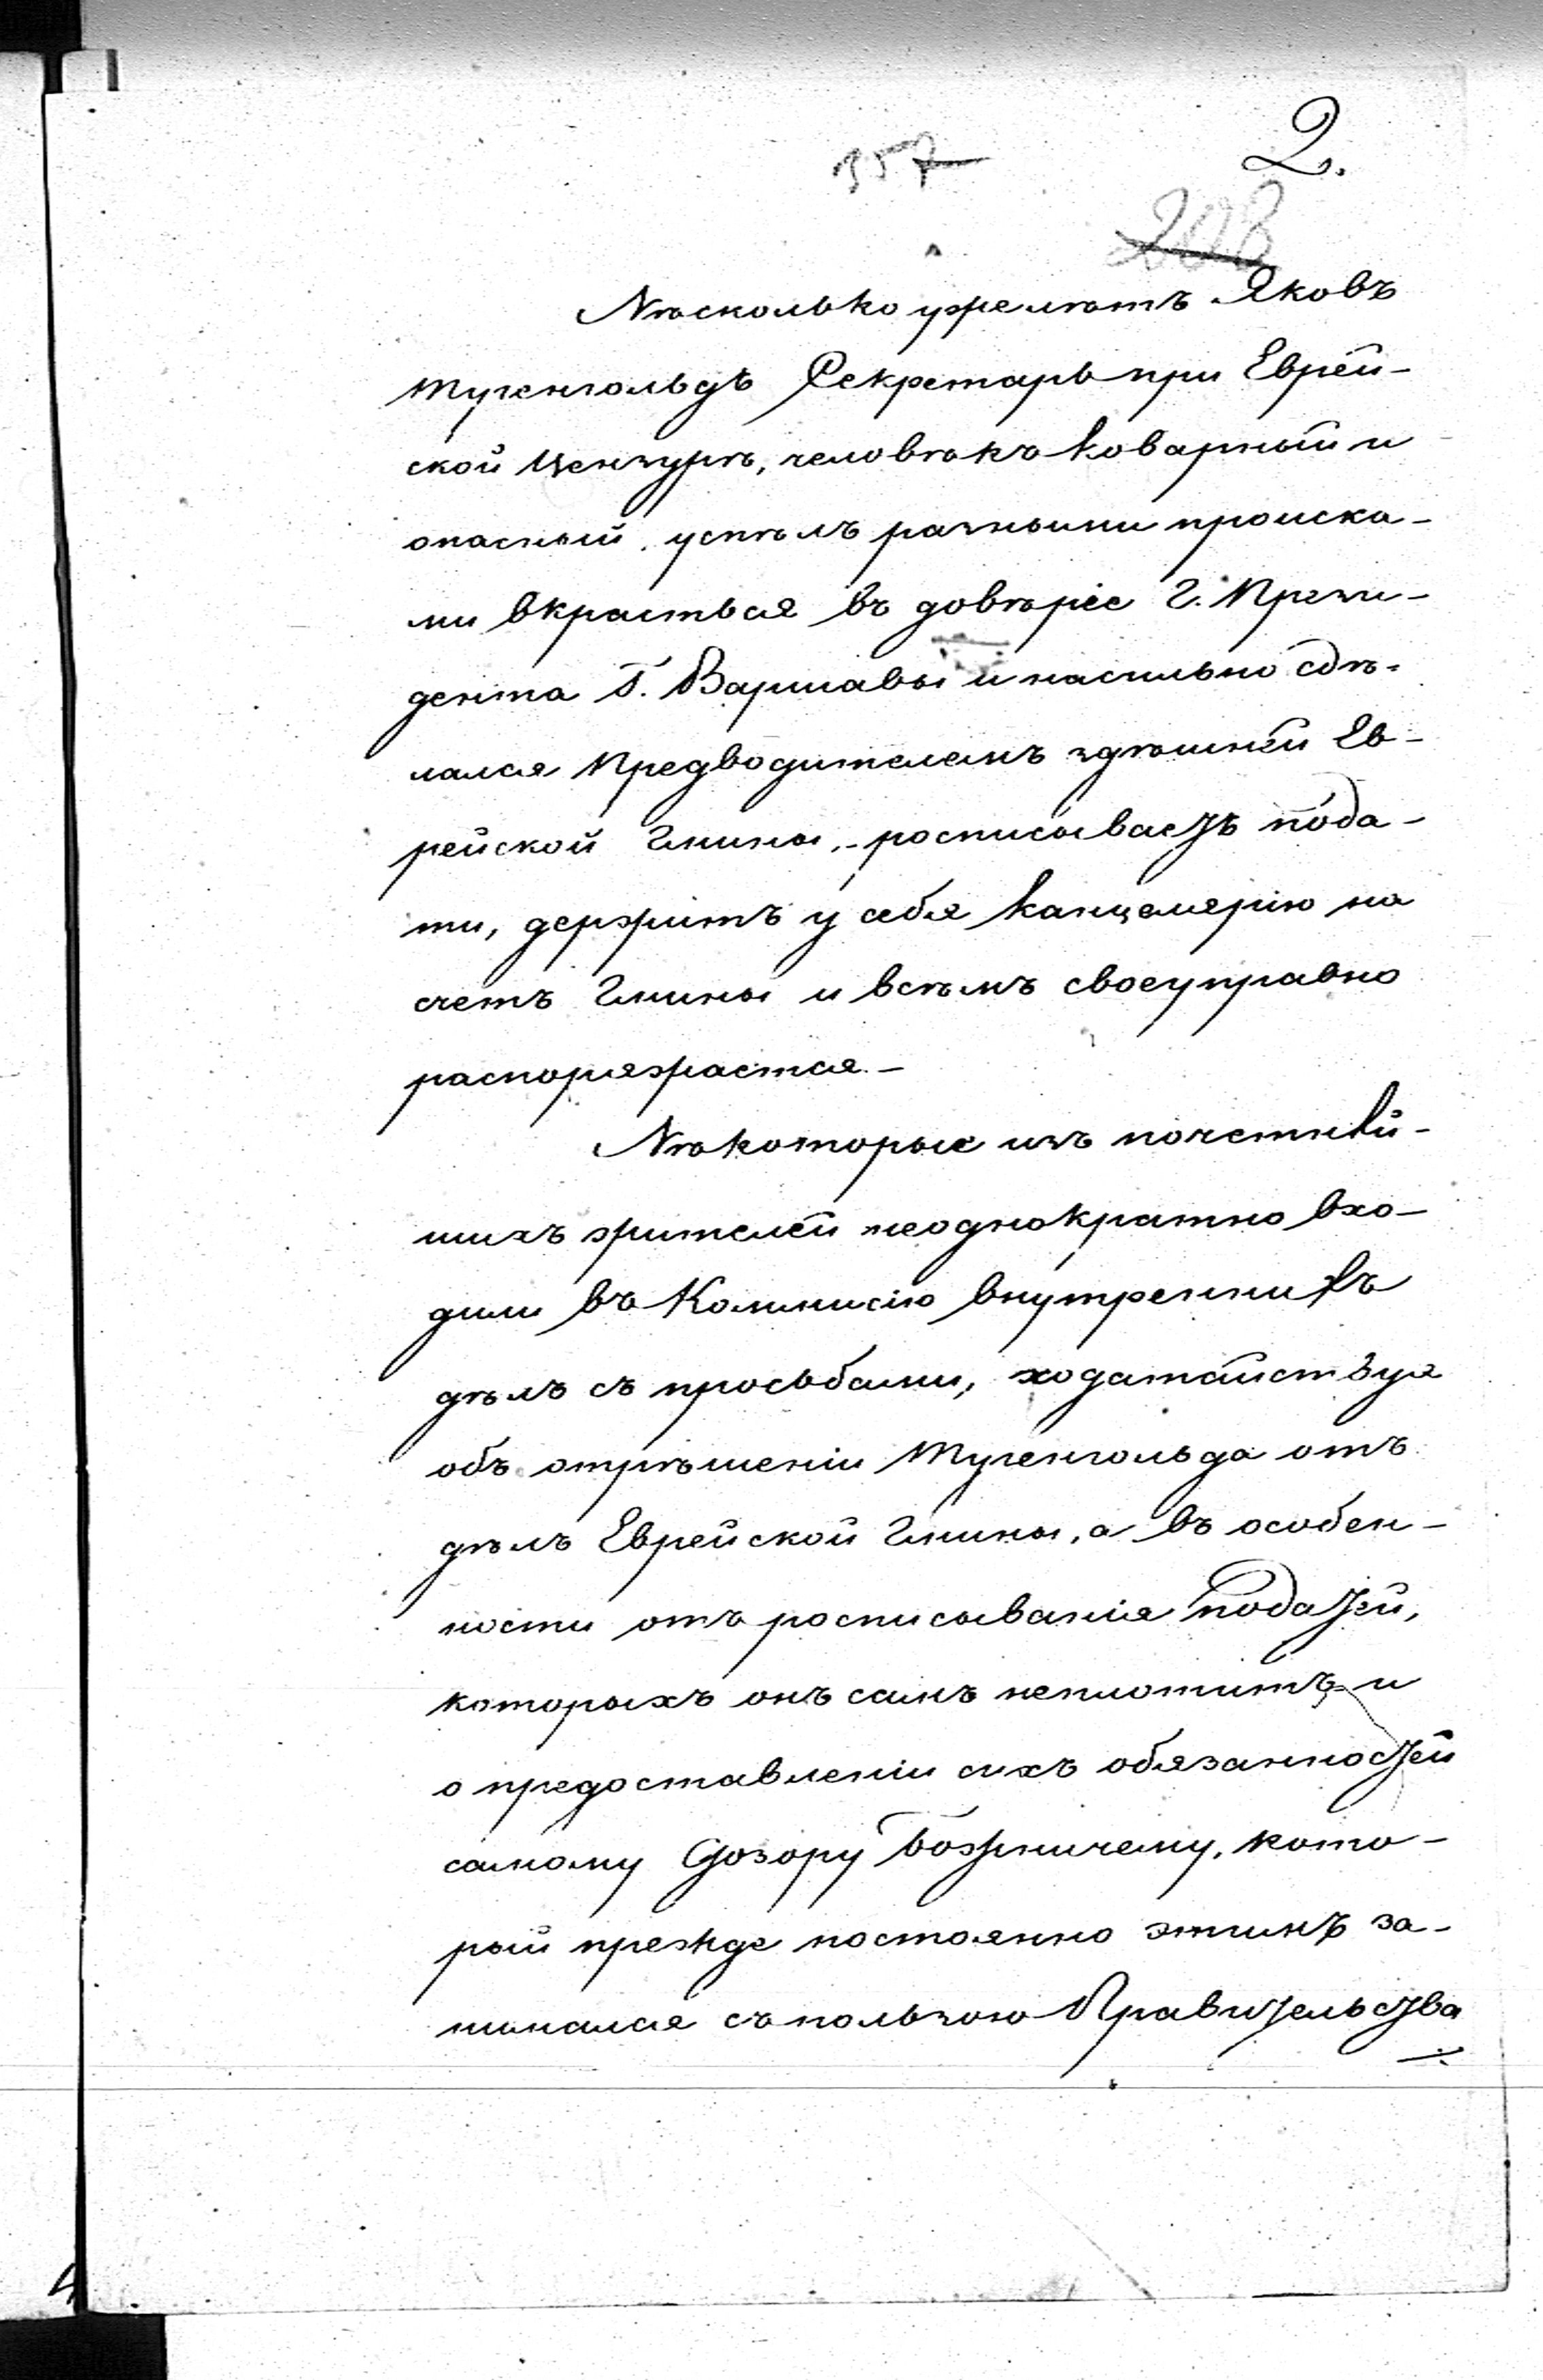 2.
357
208
Нѣсколько уже лѣтъ Яковъ
Тугенгольдъ Секретарь при Еврей-
ской Цензурѣ, человѣкъ коварный и
опасный, успѣлъ разными происка-
ми вкрасться въ довѣріе Г. Прези-
дента Г. Варшавы и насильно сдѣ-
лался Предводителемъ здѣшней Ев-
рейской Гмины, росписываетъ пода-
ти, держитъ у себя Канцелярію на
счетъ Гмины и всѣмъ своеуправно
распоряжается.-
Нѣкоторые изъ почетнѣй-
шихъ жителей неоднократно вхо-
дили въ Коммисію Внутреннихъ
дѣлъ съ просьбами, ходатайствуя
объ отрѣшеніи Тугенгольда отъ
дѣлъ Еврейской Гмины, а въ особен-
ности отъ росписыванія податей,
которыхъ онъ самъ неплотитъ и
о предоставленіи сихъ обязанностей
самому Дозору Божничему, кото-
рый прежде постоянно этимъ за-
нимался съ пользою Правительства